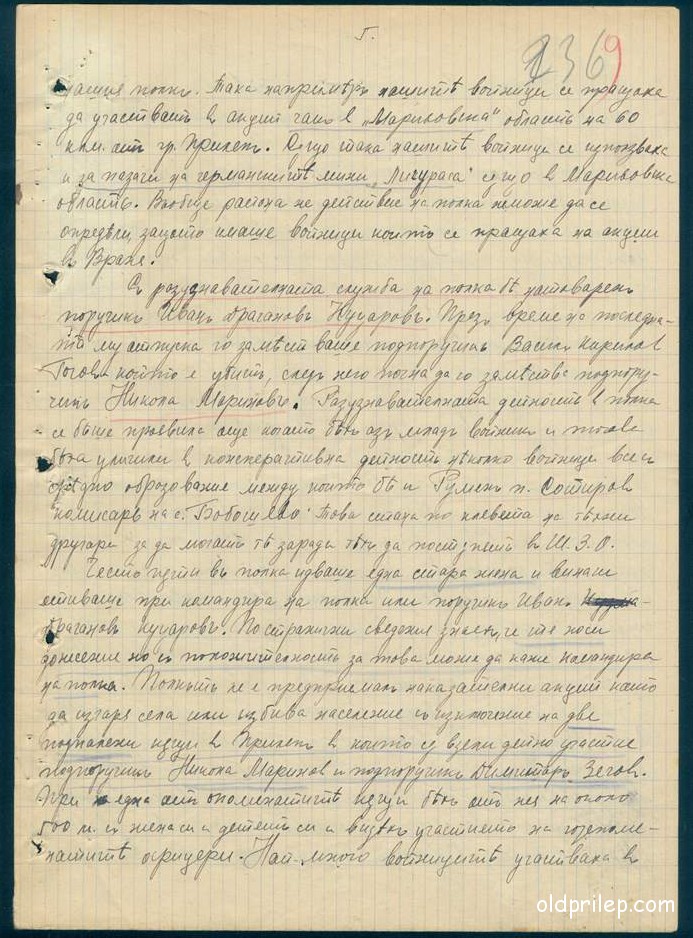 5.
1369
нашия полкъ. Така напримѣръ нашитѣ войници се пращаха
да участватъ в акции чакъ в „Мариховска" область на 60
клм. отъ гр. Прилепъ. Също така нашитѣ войници се използваха
и за пазачи на германскитѣ мини „Лигураса" също в Мариховска
область. Въобще района на действие на полка неможе да се
опредѣли, защото имаше войници които се пращаха на акции
в Враня.
В разузнавателната служба на полка бѣ натоваренъ
поручикъ Иванъ Драгановъ Куцаровъ. Презъ време на последна-
та му отпуска го замѣстваше подпоручикъ Василъ Кирилов
Гоговъ който е убитъ, следъ него почна да го замѣства подпору-
чикъ Никола Мариновъ. Разузнавателната дейность в полка
се бѣше проявила още когато бѣхъ азъ младъ войникъ и тогава
бѣха уличили в конспиративна дейность нѣколко войници все с
срѣдно образование между които бѣ и Руменъ п. Сотиров
комисаръ на с. Бобошево. Това стана по клевета на тѣхни
другари за да могатъ тѣ заради тѣхъ да постѫпятъ въ Ш.З.О.
Често пѫти въ полка идваше една стара жена и винаги
отиваше при командира на полка или поручикъ Иван
Драгановъ Куцаровъ. По странични сведения знаехъ, че тя носи
донесение но с положителность за това може да каже командира
на полка. Полкътъ не е предприемалъ наказателни акции като
да изгаря села или избива население с изключение на две
подпалени кѫщи в Прилепъ в които сѫ взели дейно участие
подпоручикъ Никола Маринов и подпоручикъ Димитъръ Зегов.
При една отъ споменатитѣ кѫщи бѣхъ отъ нея на около
500 м. с жена си и детето си и видѣхъ участието на горепоме-
натитѣ офицери. Най-много войницитѣ участваха в
oldprilep.com